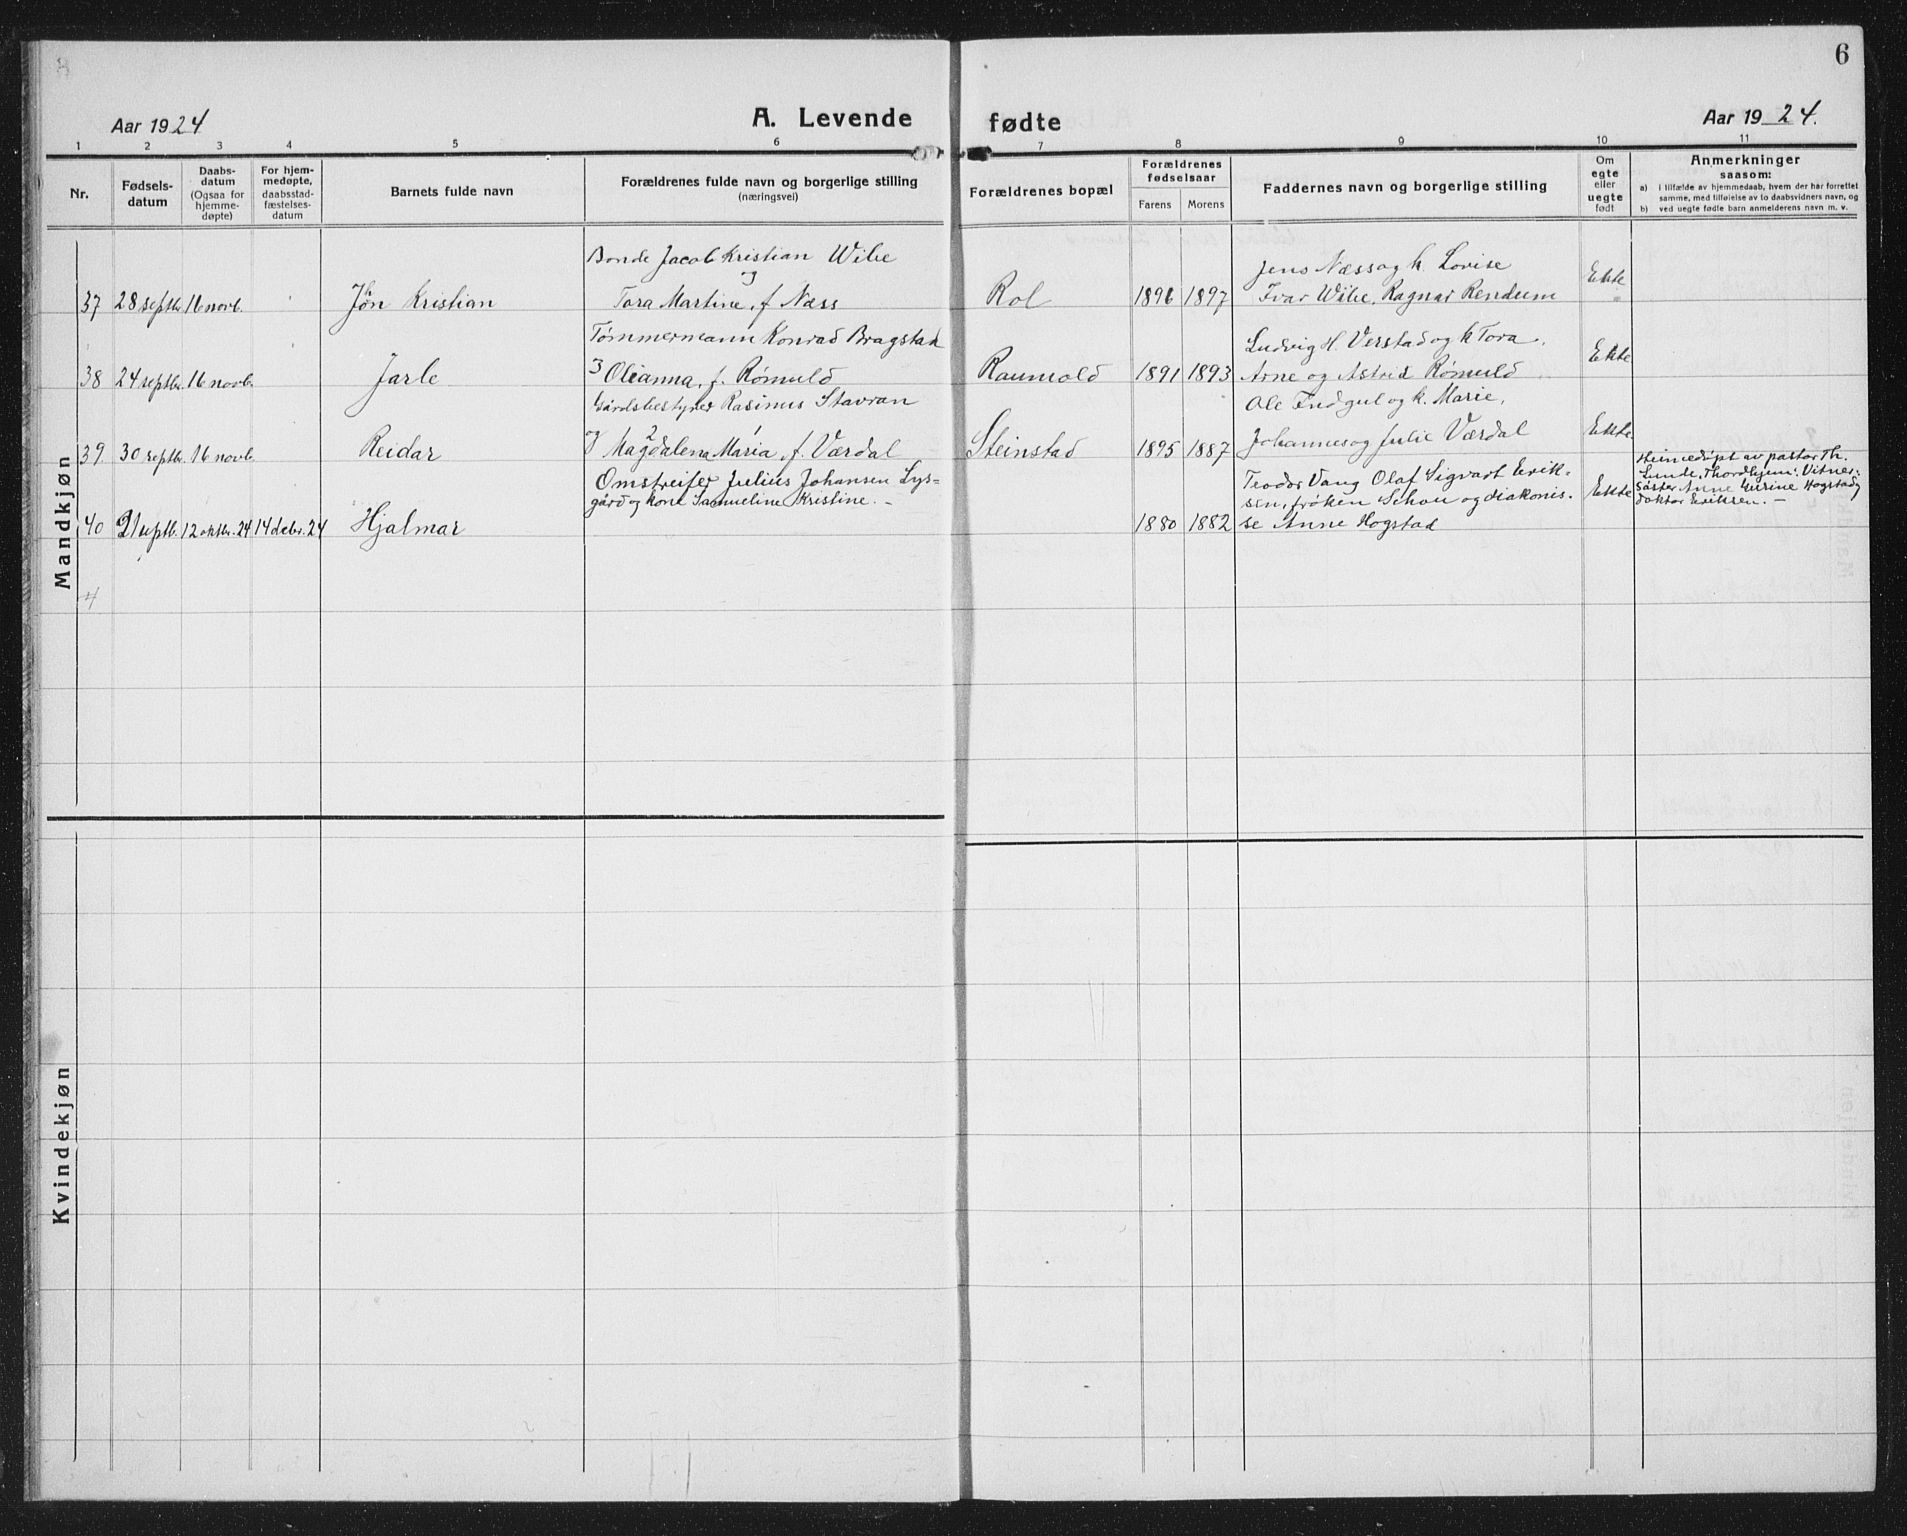 6
Aar 1924
A. Levende
fødte
Aar 1924.
1 2 3 4 5 6 7 8 9 10 11
Nr.
Fødsels-
datum
Daabs-
datum
(Ogsaa for
hjemme-
døpte)
For hjem-
medøpte,
daabsstad-
fæstelses-
datum
Barnets fulde navn
Forældrenes fulde navn og borgerlige stilling
(næringsvei)
Forældrenes bopæl
Forældrenes
fødselsaar
Farens
Morens
Faddernes navn og borgerlige stilling
Om
egte
eller
uegte
født
Anmerkninger
saasom:
a) i tilfælde av hjemmedaab, hvem der har forrettet
samme, med tilføielse av to daabsvidners navn, og
b) ved uegte fødte barn anmelderens navn m. v.
Mandkjøn
Bonde Jacob Kristian Wibe
og
Jens Næss og k. Lovise
37 28 septbr. 16 novb. John Kristian Tora Martine, f. Næss Rol 1896 1897 Ivar Wibe, Ragnar Rendum Ekte
Tømmermann Konrad Bragstad
Ludvig H. Verstad og k Tora,
38 24 septbr. 16 novb. Jarle 3 Olianna, f. Rømuld Raumold 1891 1893 Arne og Astrid Rømuld Ekte
Gårdsbestyrer Rasinus Stavran
Ole Indgul og k. Marie,
39. 30 septbr. 16 novb. Reidar og 2 Magdalena 1 Maria, f. Værdal Steinstad 1895 1887 Johannes og Julie Værdal Ekte.
Omstreifer Julius Johansen Lys-
gård og kone Samueline Kristine. –
Teodor Vang Olaf Sigvart Erik-
sen, frøken Schou og diakonis-
40 21 septb. 12 oktbr. 24 14 debr. 24 Hjalmar 1880 1882 se Anne Hogstad Ekte
Heimedøpt av pastor Th.
Lunde, Thordhjem. Vitner:
søster Anne Gurine Hogstad og
doktor Eriksen. –
4
Kvindekjøn